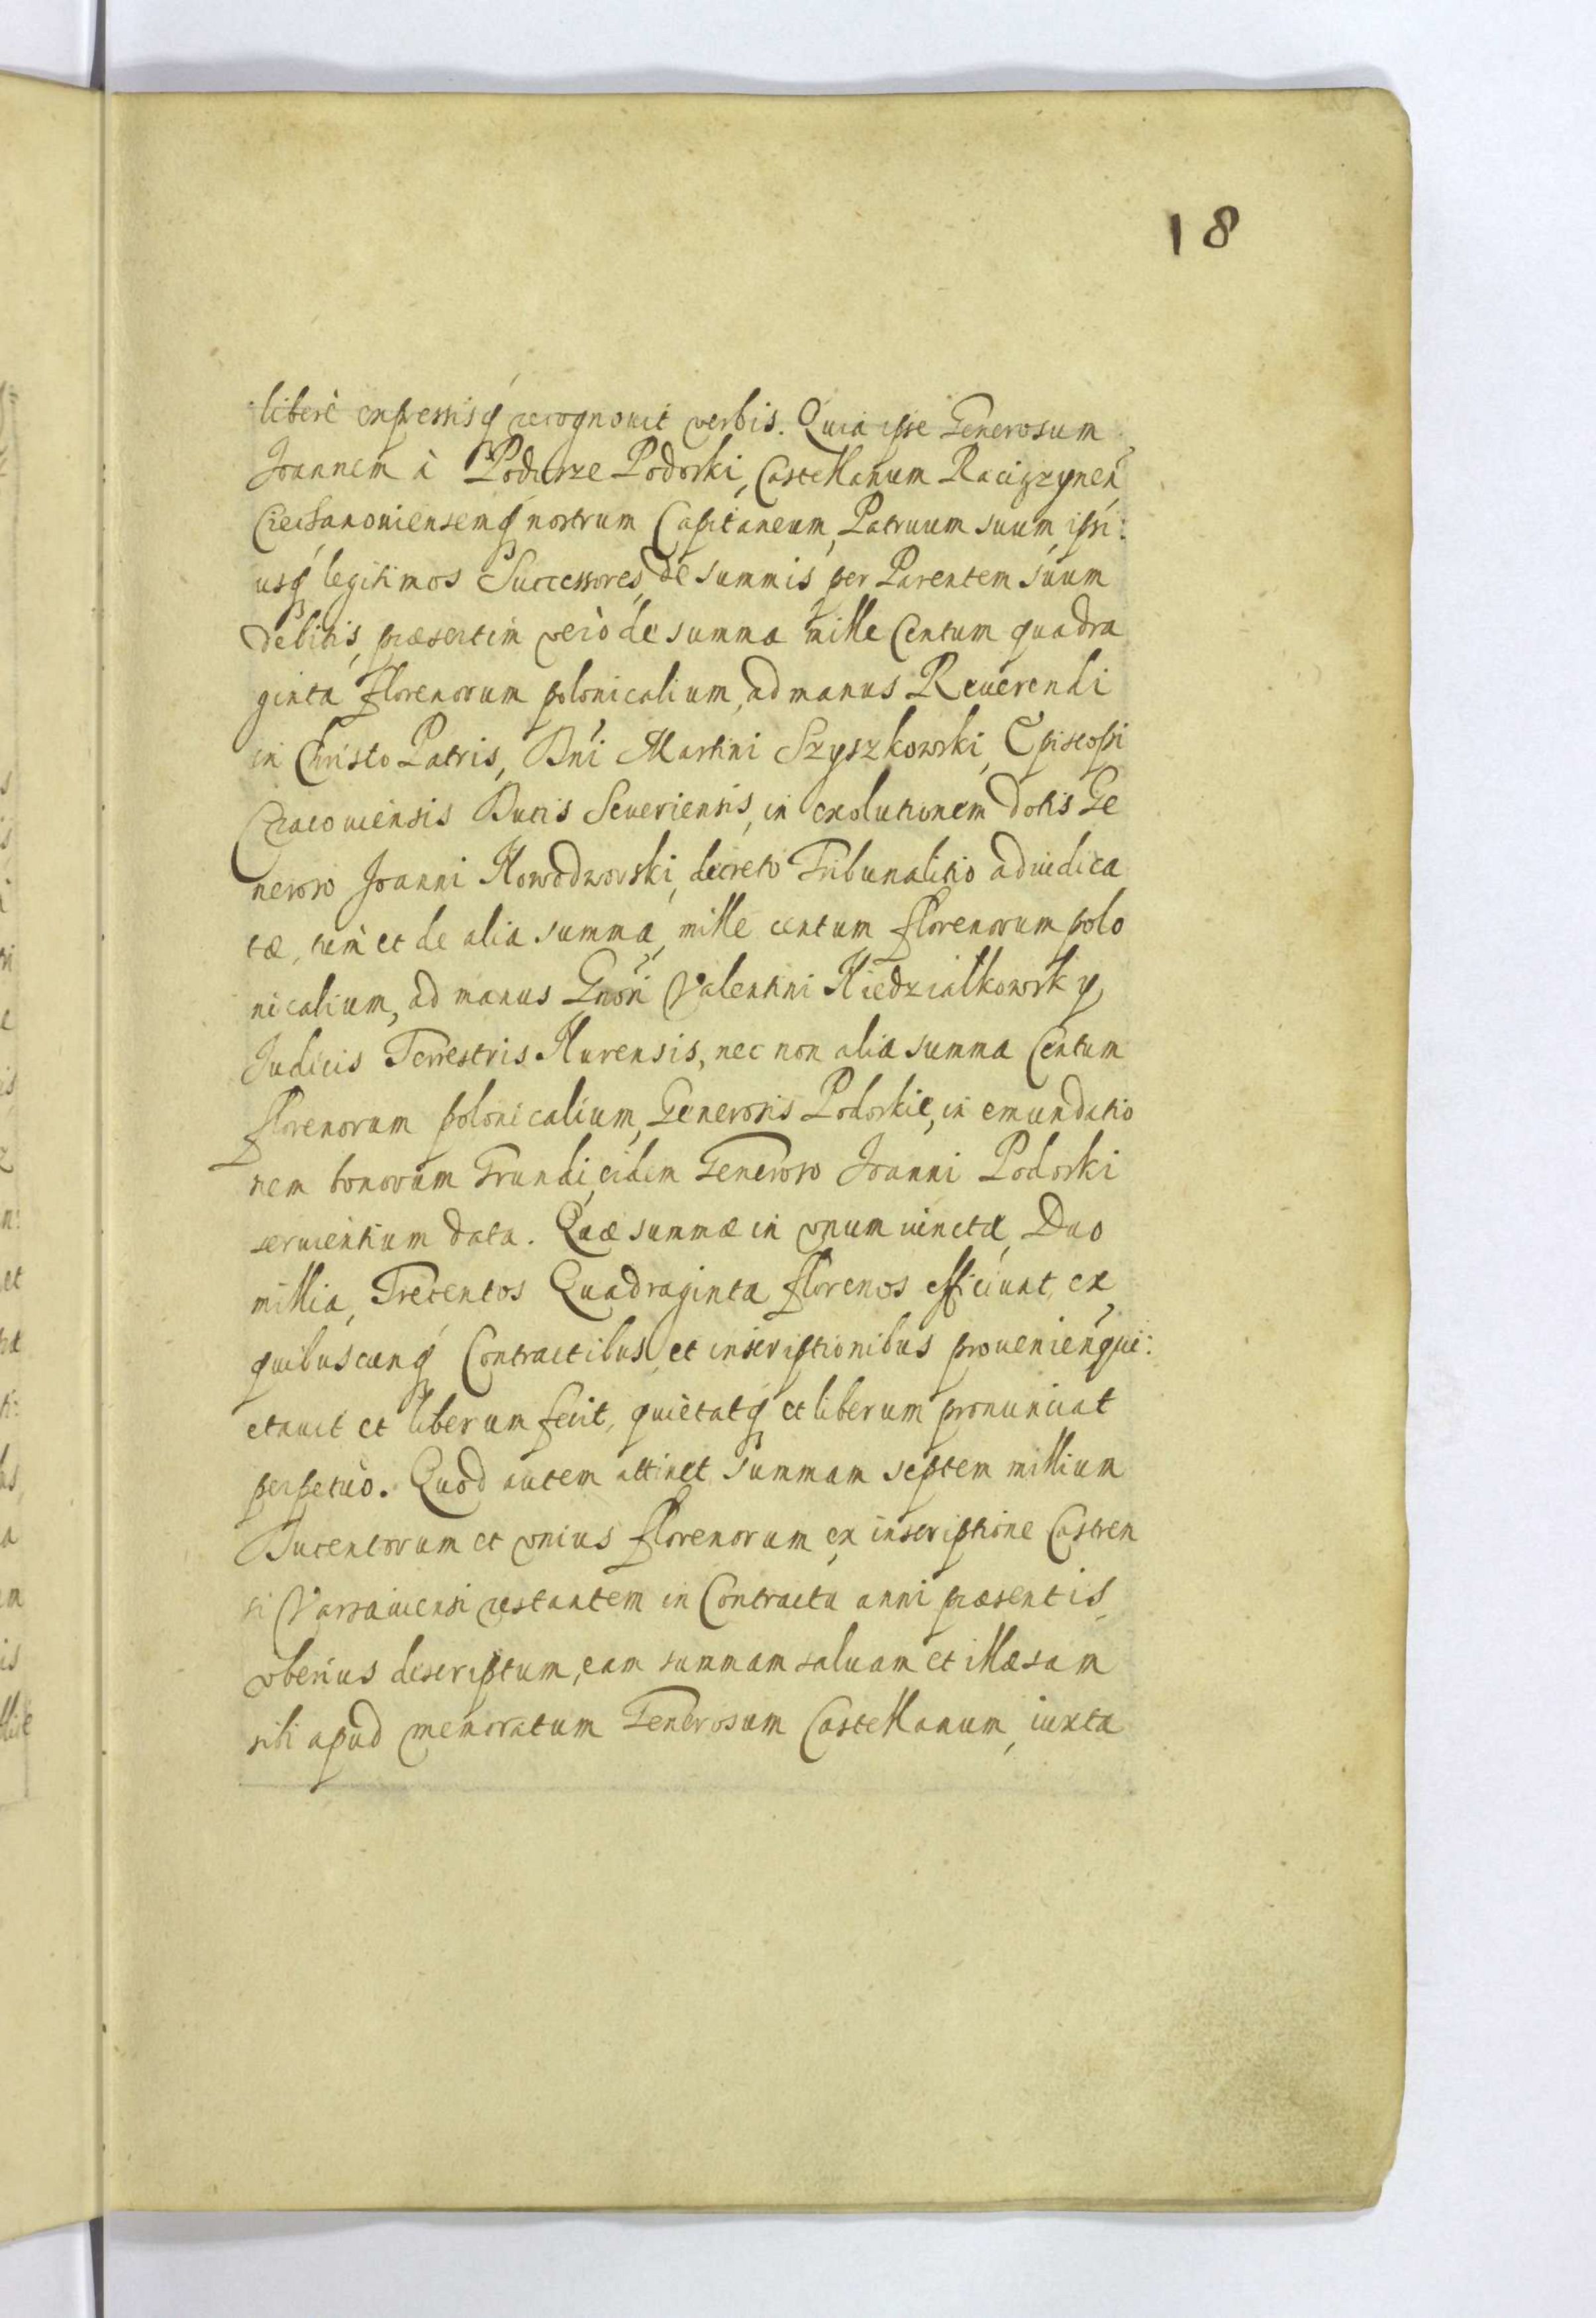 18
liberè expressisq̃ recognouit verbis. Quia ipse Generosum
Joannem à Podosze Podoski, Castellanum Raciązynen̄
Ciechanouiensemq̃ nostrum Capitaneum, Patruum suum, ipsi:
usq̃ legitimos Successores, de summis per Parentem suum
debitis, præsertim verò de summa mille Centum quadra
ginta florenorum polonicalium, ad manus Reuerendi
in Christo Patris, Dn̄i Martini Szyszkowski, Episcopi
Cracouiensis Ducis Seueriensis, in exolutionem dotis Ge
neroso Joanni Nowodworski, decreto Tribunalitio adiudica
tæ, tum et de alia summa, mille centum florenorum polo
nicalium, ad manus Gn̄ori Valentini Niedzialkowsky
Judicis Terrestris Nurensis, nec non alia summa Centum
florenorum polonicalium, Generosis Podoskie, in emundatio
nem bonorum Grundi, eidem Generoso Joanni Podoski
seruientium data. Quæ summæ in vnum iunctæ, Duo
millia, Trecentos Quadraginta florenos efficiunt, ex
quibuscunq̃ Contractibus et inscriptionibus prouenien̄ qui:
etauit et liberum fecit, quietatq̃ et liberum pronunciat
perpetuò. Quod autem attinet summam septem millium
Ducentorum et vnius florenorum ex inscriptione Castren
si Varsauiensi restantem in Contractu anni præsentis
vberius descriptum, eam summam saluam et illæsam
sibi apud memoratum Generosum Castellanum, iuxta